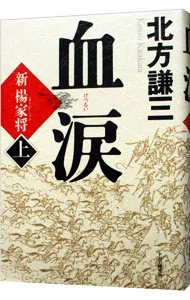 北方謙三
Kitakata Kenzo
血涙
けつるい
新楊家将
上